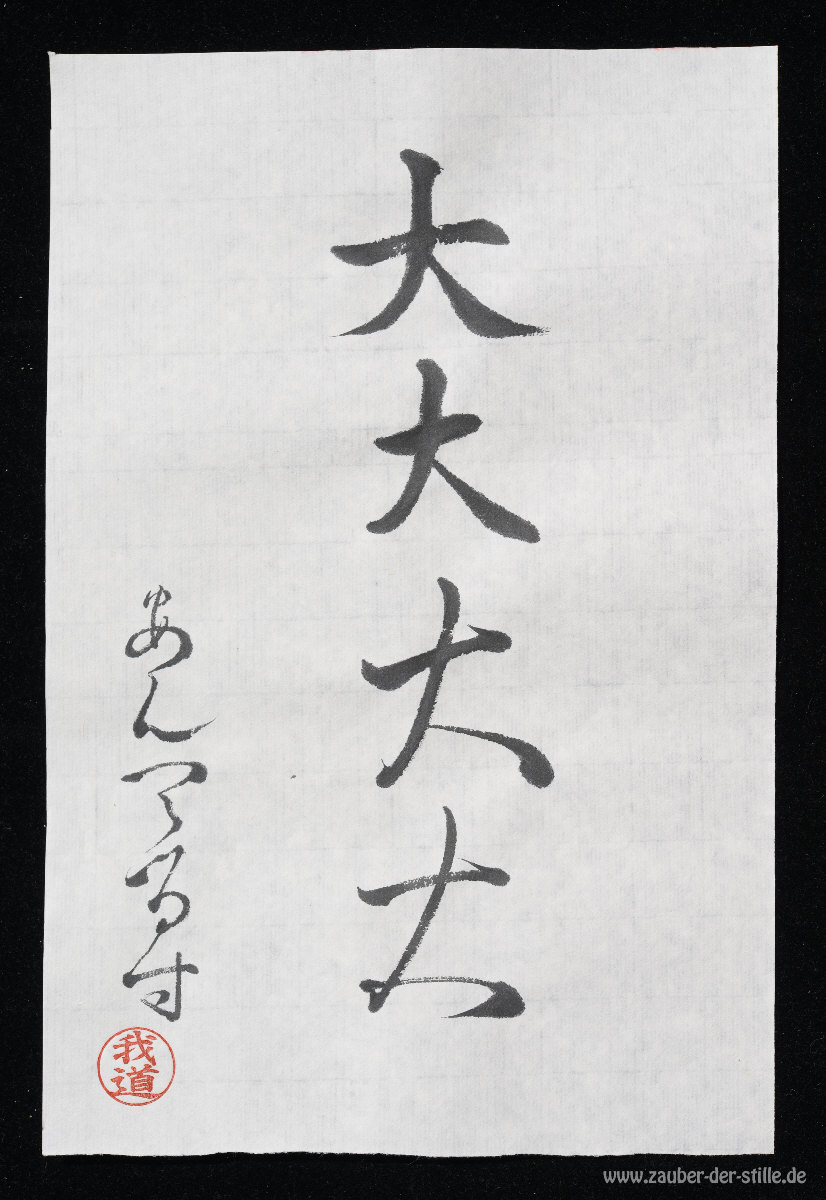 大大大大
あん
我道
www.zauber-der-stille.de